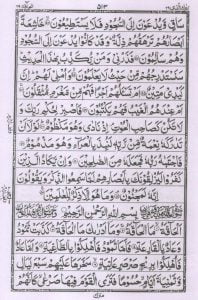 ٥١٣
سَاقٍ وَّيُدْعَوْنَ إِلَى السُّجُودِ فَلَا يَسْتَطِيعُونَ خَاشِعَةً
أَبْصَارُهُمْ تَرْهَقُهُمْ ذِلَّةٌ وَقَدْ كَانُوا يُدْعَوْنَ إِلَى السُّجُودِ
وَهُمْ سَالِمُونَ فَذَرْنِي وَمَن يُكَذِّبُ بِهَٰذَا الْحَدِيثِ
سَنَسْتَدْرِجُهُم مِّنْ حَيْثُ لَا يَعْلَمُونَ وَأُمْلِي لَهُمْ إِنَّ
كَيْدِي مَتِينٌ أَمْ تَسْأَلُهُمْ أَجْرًا فَهُم مِّن مَّغْرَمٍ مُّثْقَلُونَ
أَمْ عِندَهُمُ الْغَيْبُ فَهُمْ يَكْتُبُونَ فَاصْبِرْ لِحُكْمِ رَبِّكَ وَ
لَا تَكُن كَصَاحِبِ الْحُوتِ إِذْ نَادَىٰ وَهُوَ مَكْظُومٌ لَوْلَا أَن
تَدَارَكَهُ نِعْمَةٌ مِّن رَّبِّهِ لَنُبِذَ بِالْعَرَاءِ وَهُوَ مَذْمُومٌ
فَاجْتَبَاهُ رَبُّهُ فَجَعَلَهُ مِنَ الصَّالِحِينَ وَإِن يَكَادُ الَّذِينَ
كَفَرُوا لَيُزْلِقُونَكَ بِأَبْصَارِهِمْ لَمَّا سَمِعُوا الذِّكْرَ وَيَقُولُونَ
إِنَّهُ لَمَجْنُونٌ وَمَا هُوَ إِلَّا ذِكْرٌ لِّلْعَالَمِينَ
بِسْمِ اللَّهِ الرَّحْمَٰنِ الرَّحِيمِ
الْحَاقَّةُ مَا الْحَاقَّةُ وَمَا أَدْرَاكَ مَا الْحَاقَّةُ كَذَّبَتْ ثَمُودُ
وَعَادٌ بِالْقَارِعَةِ فَأَمَّا ثَمُودُ فَأُهْلِكُوا بِالطَّاغِيَةِ وَأَمَّا عَادٌ
فَأُهْلِكُوا بِرِيحٍ صَرْصَرٍ عَاتِيَةٍ سَخَّرَهَا عَلَيْهِمْ سَبْعَ لَيَالٍ
وَّثَمَانِيَةَ أَيَّامٍ حُسُومًا فَتَرَى الْقَوْمَ فِيهَا صَرْعَىٰ كَأَنَّهُمْ
منزل